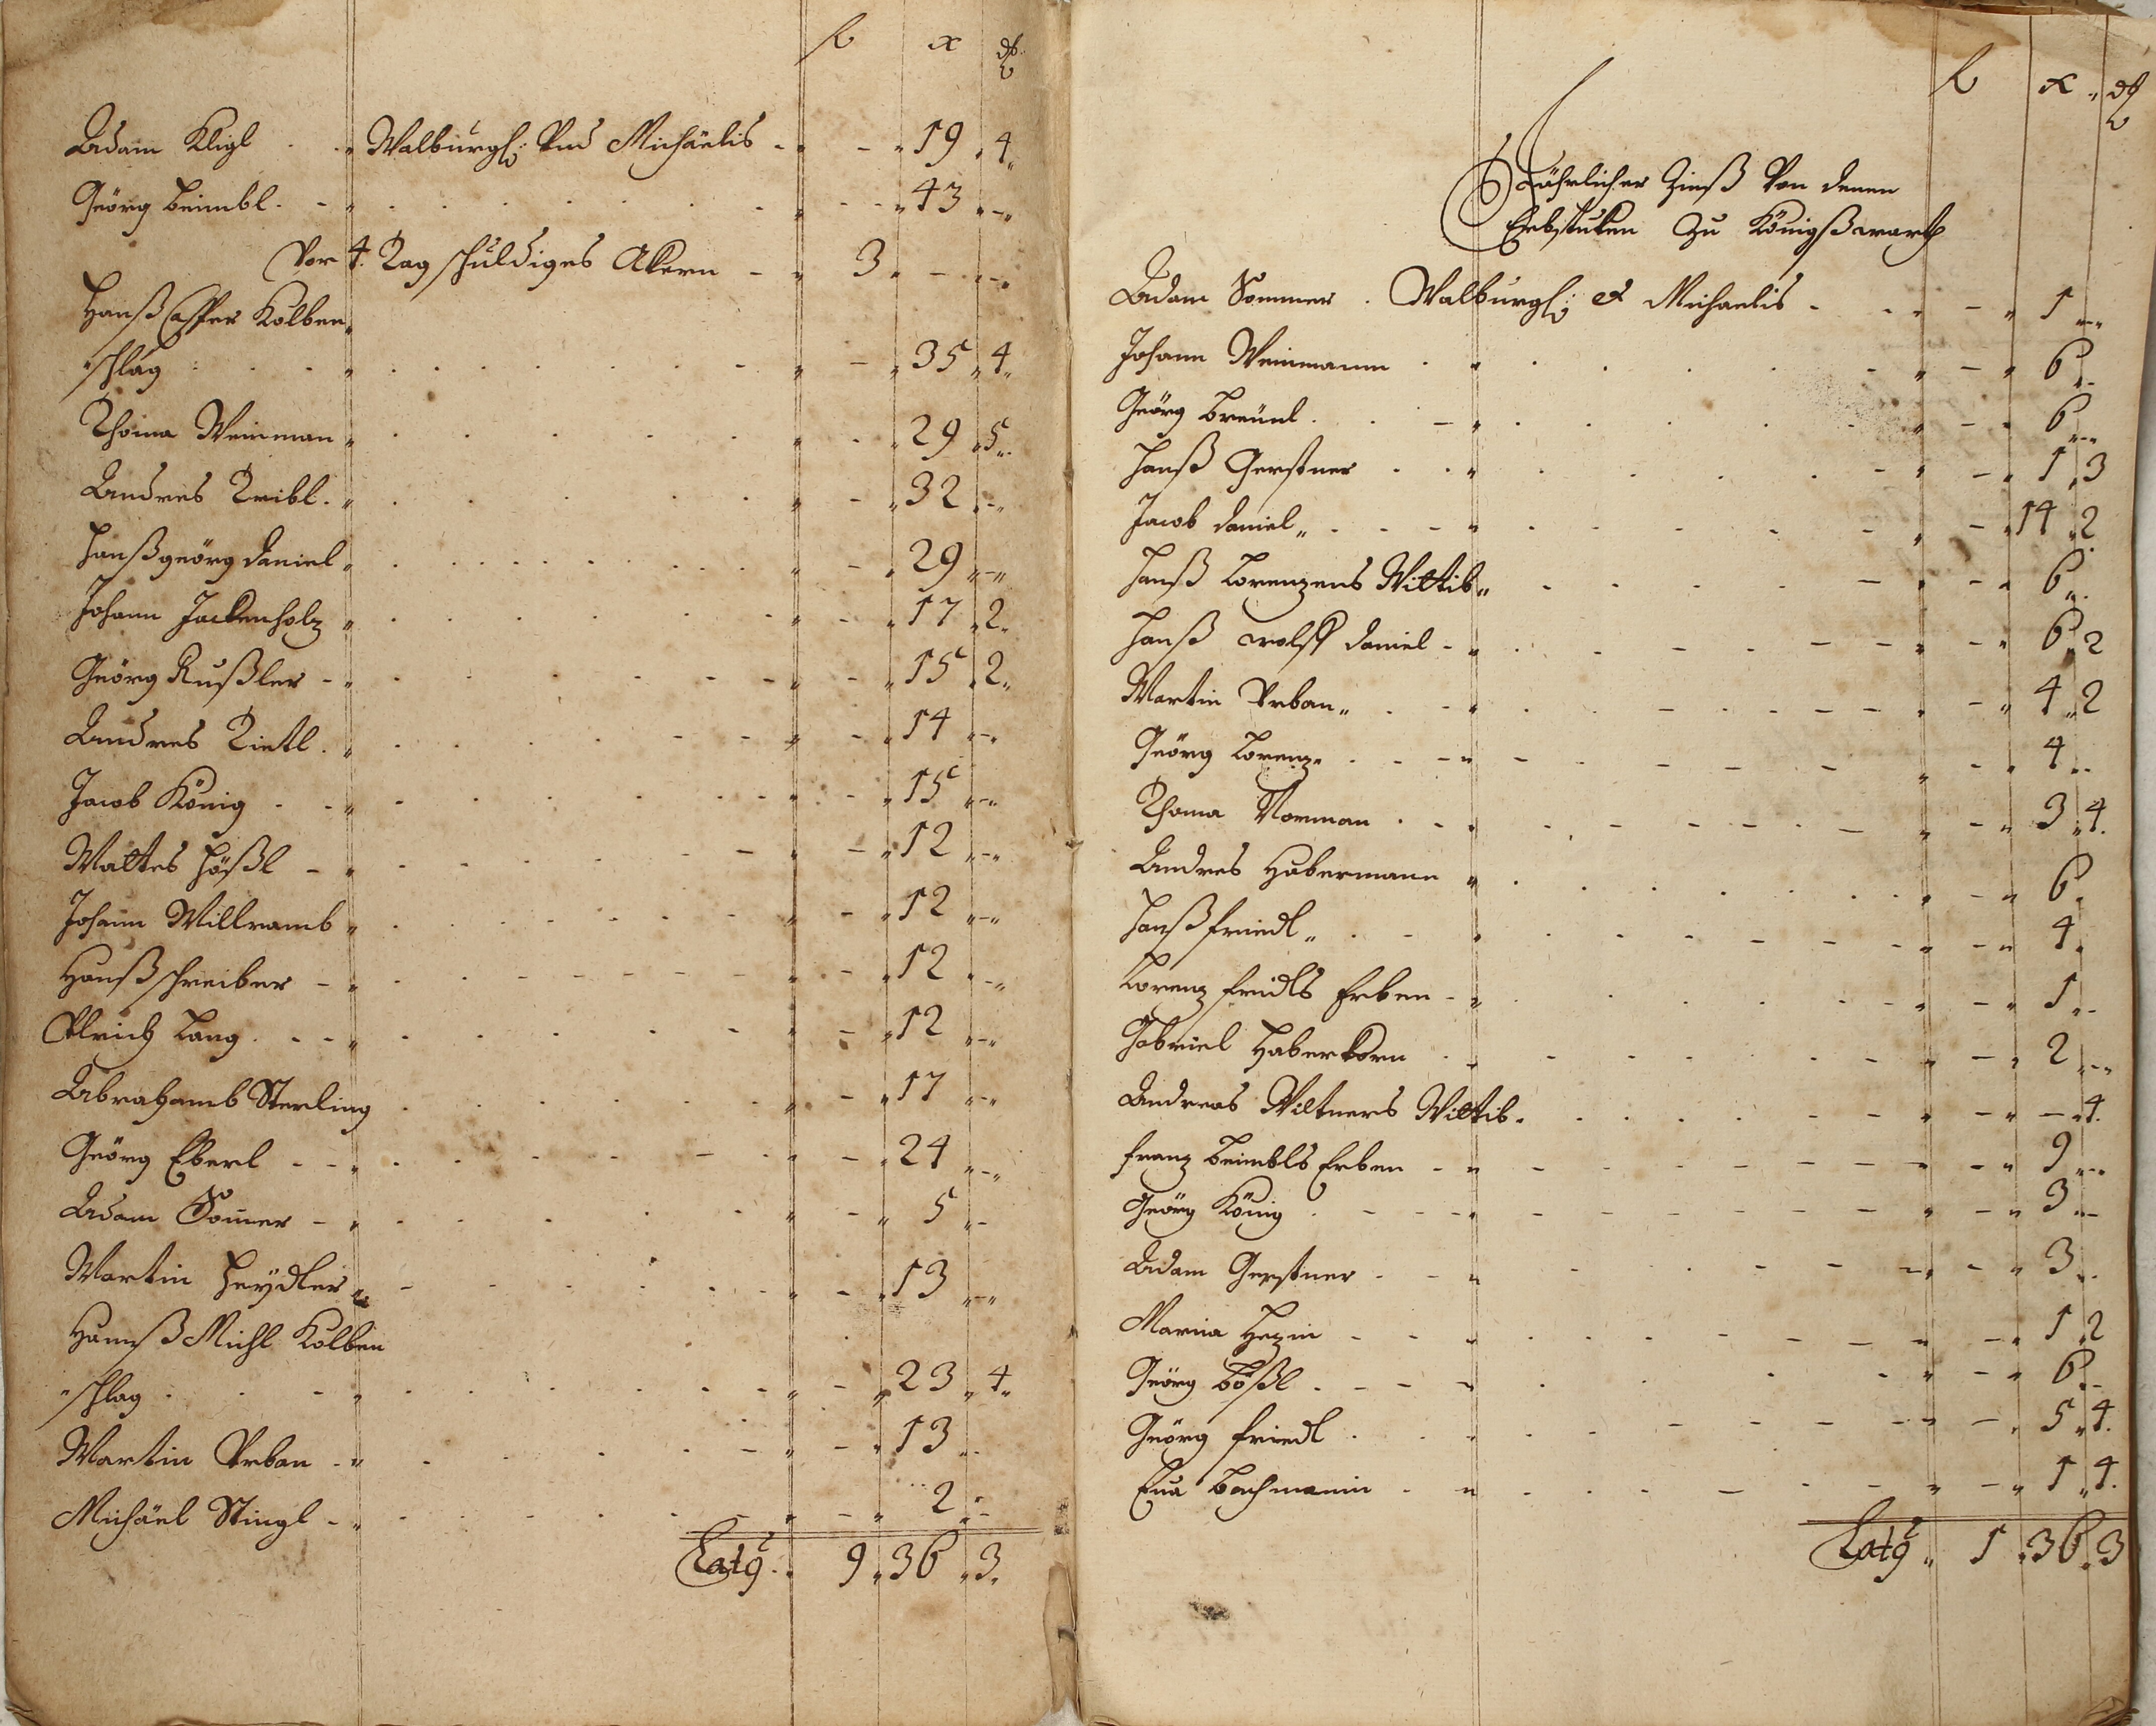 fl x ₰
Adam Kligl Walburg: Vnd Michäelis - 19 4
Geörg Beimbl - 43 -
Vor 4. Tag schuldiges Akern - 3 - -
Hanß Casper Kolben
schlag - 35 4
Thoma Weinman - 29 5
Andres Tribl - 32 -
Hanßgeörg Daniel - 29 -
Johann Jackenholz - 17 2
Geörg Rußler - 15 2
Andres Tietl - 14 -
Jacob König - 15 -
Mattes Hößl - 12 -
Johann Willramb - 12 -
Hanß Schreiber - 12 -
Vlrich Lang - 12 -
Abrahamb Sterling - 17 -
Geörg Eberl - 24 -
Adam Som̅er - 5 -
Martin Heydler - 13 -
Hannß Michl Kolben
schlag - 23 4
Martin Vrban - 13
Michäel Stingl - 2 -
Latg 9 36 3
fl x ₰
Jährlicher Zinß Von denen
Erbstuken Zu Königßwarth
Adam Sommer Walburg: et Michaelis - 1 -
Johann Weinmann - 6 -
Geörg Breünl - 6 -
Hanß Gerstner - 1 3
Jacob Daniel - 14 2
Hanß Lorenzens Wittib - 6
Hanß Wolff Daniel - 6 2
Martin Vrban - 4 2
Geörg Lorenz - 4
Thoma Norman - 3 4
Andres Habermann - 6
Hanß Friedl - 4
Lorenz Fridls Erben - 1 -
Gabriel Haberkorn - 2 -
Andreas Wiltners Wittib - - 4
Franz Beimbls Erben - 9 -
Geörg König - 3 -
Adam Gerstner - 3
Maria Hezin - 1 2
Geörg Bößl - 6 -
Geörg Friedl - 5 4
Eua Bachmanin - 1 4
Latg 1 36 3